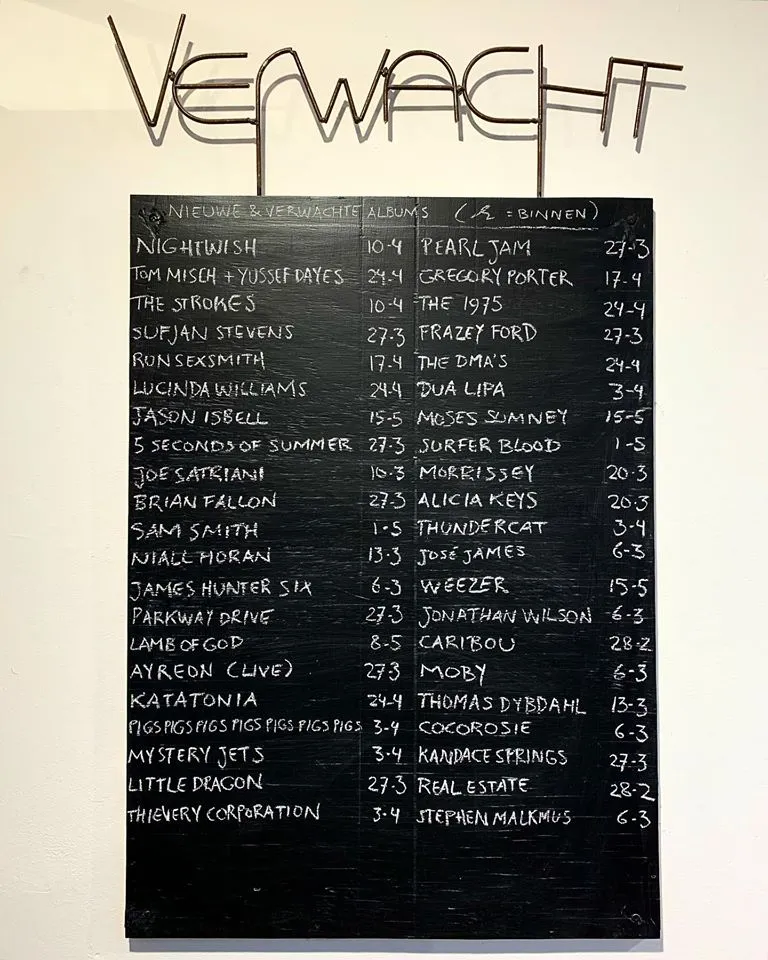 VERWACHT
NIEUWE & VERWACHTE ALBUMS ( = BINNEN)
NIGHTWISH 10-4 PEARL JAM 27-3
TOM MISCH + YUSSEF DAYES 24-4 GREGORY PORTER 17-4
THE STROKES 10-4 THE 1975 24-4
SUFJAN STEVENS 27-3 FRAZEY FORD 27-3
RON SEXSMITH 17-4 THE DMA'S 24-4
LUCINDA WILLIAMS 24-4 DUA LIPA 3-4
JASON ISBELL 15-5 MOSES SUMNEY 15-5
5 SECONDS OF SUMMER 27-3 SURFER BLOOD 1-5
JOE SATRIANI 10-3 MORRISSEY 20-3
BRIAN FALLON 27-3 ALICIA KEYS 20-3
SAM SMITH 1-5 THUNDERCAT 3-4
NIALL HORAN 13-3 JOSÉ JAMES 6-3
JAMES HUNTER SIX 6-3 WEEZER 15-5
PARKWAY DRIVE 27-3 JONATHAN WILSON 6-3
LAMB OF GOD 8-5 CARIBOU 28-2
AYREON (LIVE) 27-3 MOBY 6-3
KATATONIA 24-4 THOMAS DYBDAHL 13-3
PIGS PIGS PIGS PIGS PIGS PIGS PIGS 3-4 COCOROSIE 6-3
MYSTERY JETS 3-4 KANDACE SPRINGS 27-3
LITTLE DRAGON 27-3 REAL ESTATE 28-2
THIEVERY CORPORATION 3-4 STEPHEN MALKMUS 6-3